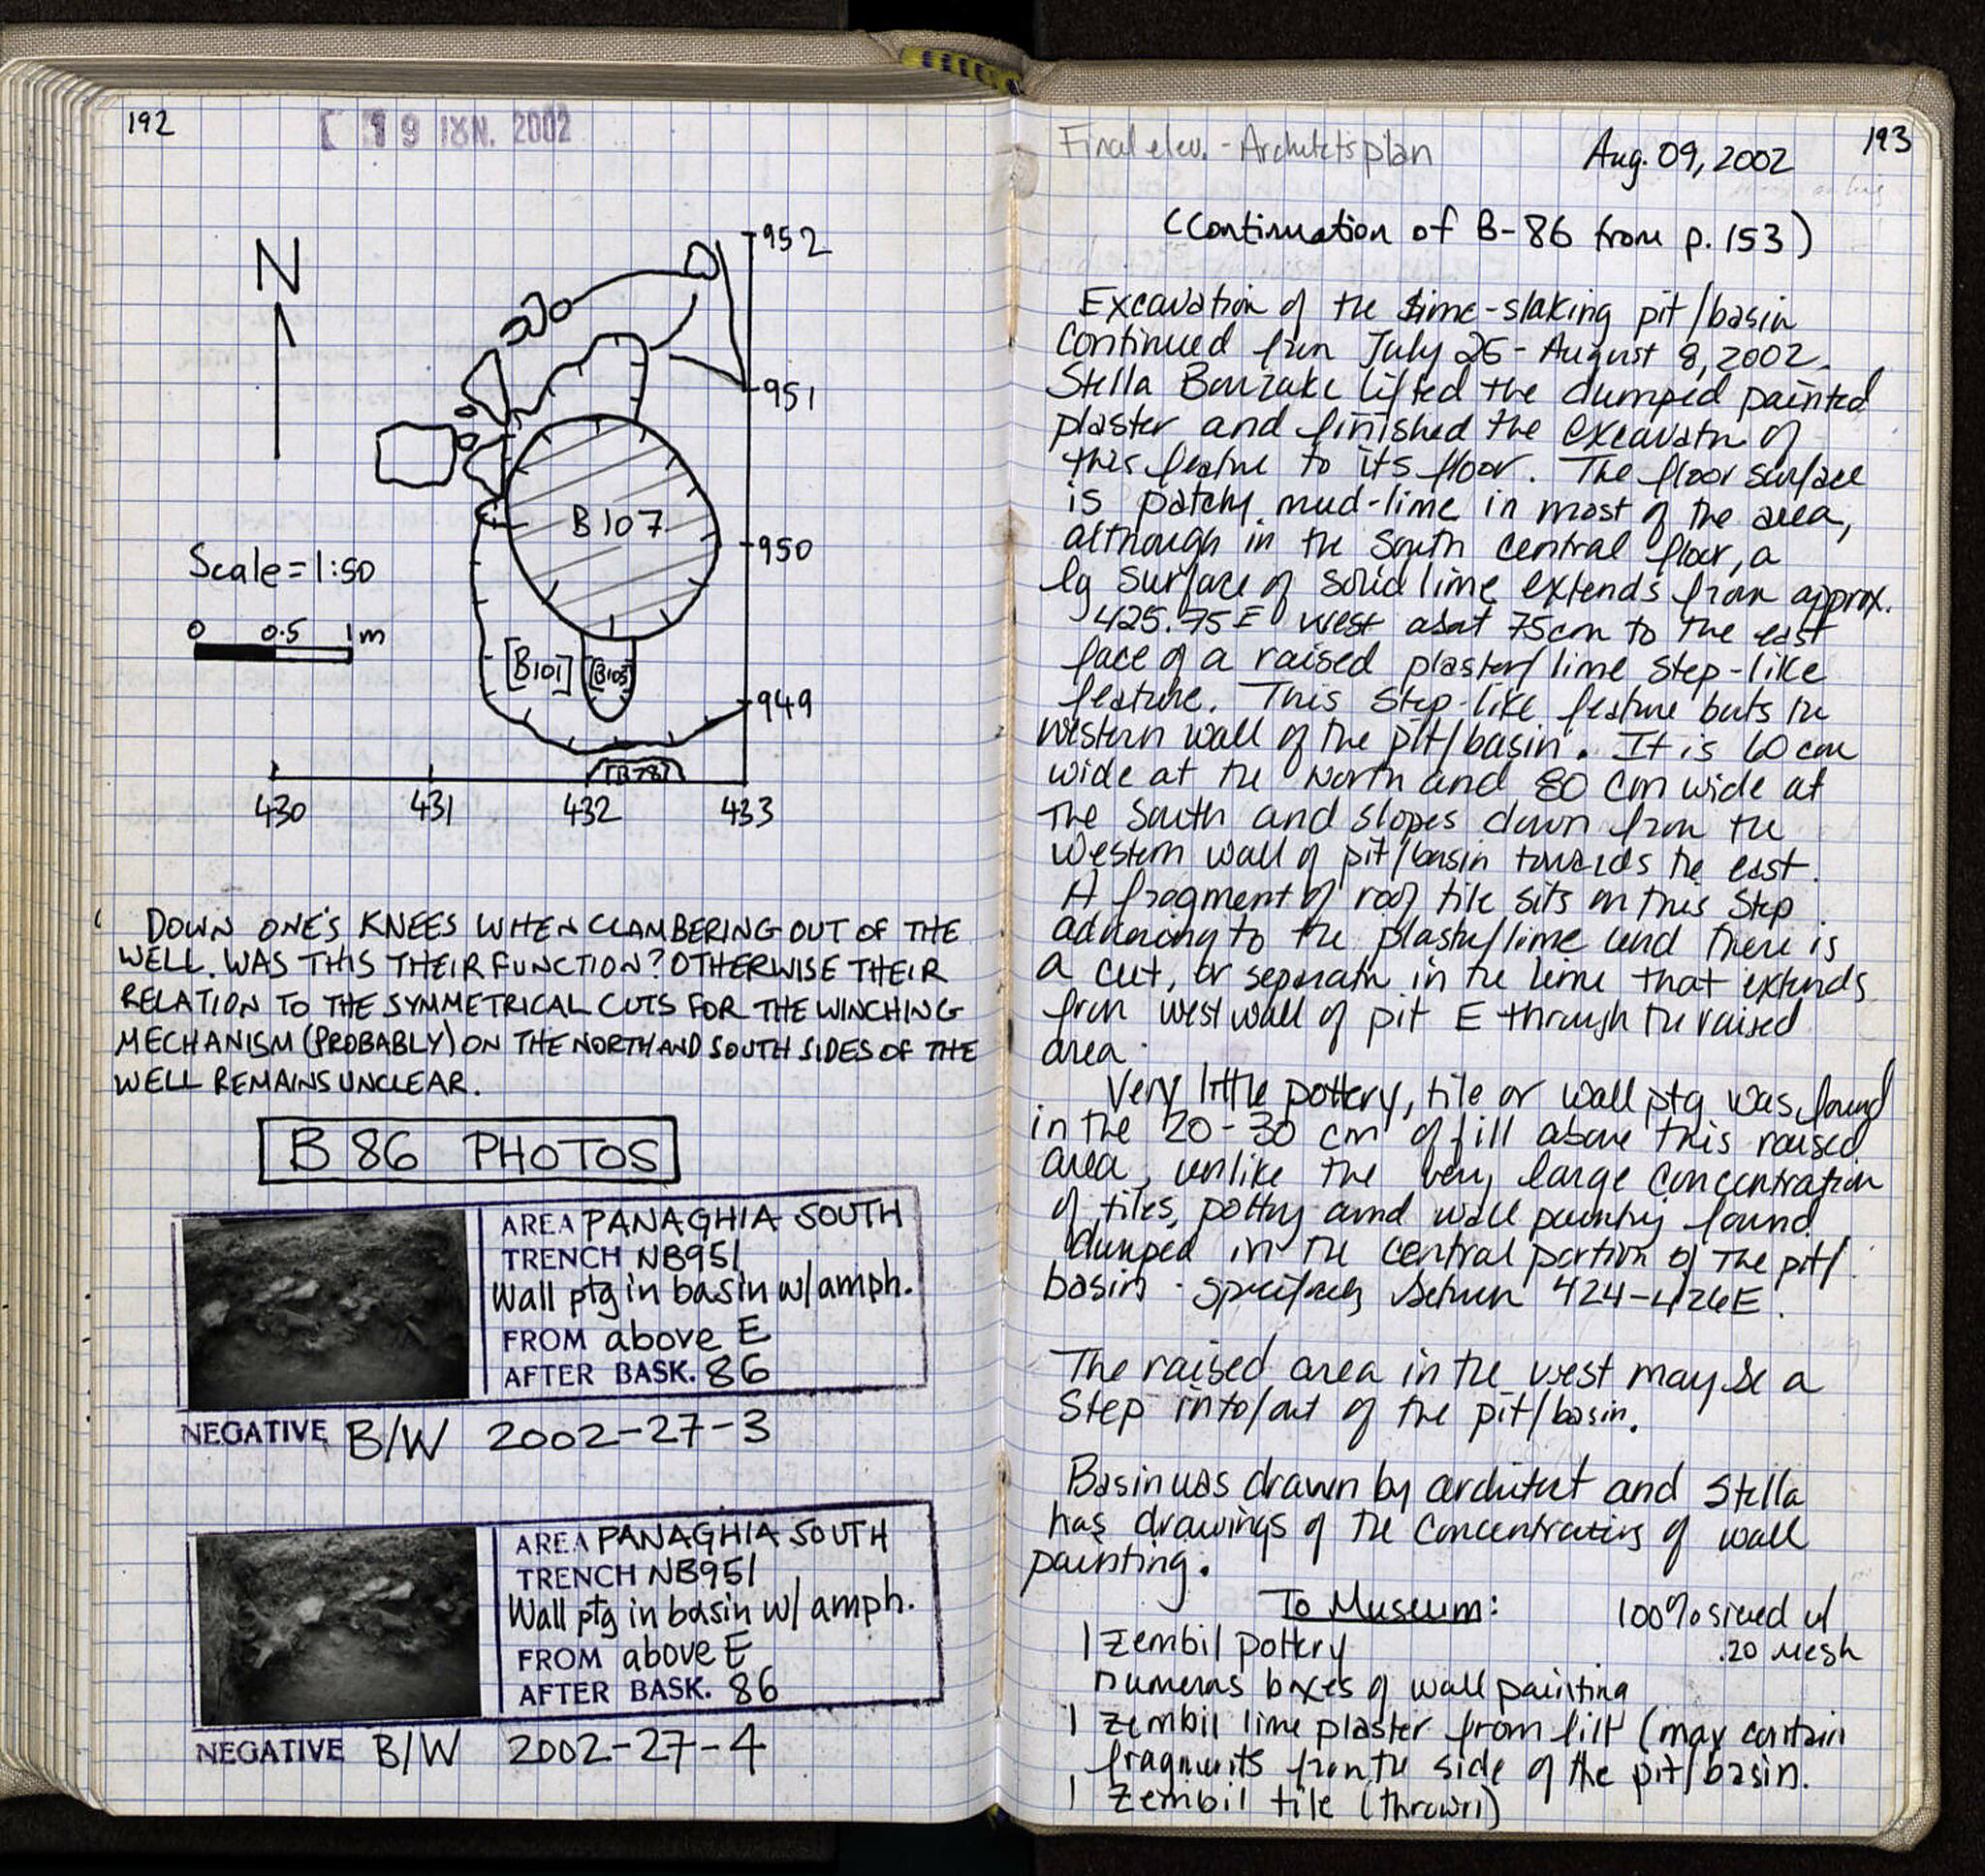 192
19 ΙΟΥΝ. 2002
N
952
951
B107
950
Scale=1:50
0 0.5 1m
[B101] [B105]
949
[B78]
430 431 432 433
DOWN ONE'S KNEES WHEN CLAMBERING OUT OF THE
WELL. WAS THIS THEIR FUNCTION? OTHERWISE THEIR
RELATION TO THE SYMMETRICAL CUTS FOR THE WINCHING
MECHANISM (PROBABLY) ON THE NORTH AND SOUTH SIDES OF THE
WELL REMAINS UNCLEAR.
B 86 PHOTOS
AREA PANAGHIA SOUTH
TRENCH NB951
Wall ptg in basin w/amph.
FROM above E
AFTER BASK. 86
NEGATIVE B/W 2002-27-3
AREA PANAGHIA SOUTH
TRENCH NB951
Wall ptg in basin w/ amph.
FROM above E
AFTER BASK. 86
NEGATIVE B/W 2002-27-4
193
Final elev. - Architects plan Aug. 09, 2002
(Continuation of B-86 from p. 153)
Excavation of the lime-slaking pit/basin
continued from July 25 - August 8, 2002.
Stella Bouzaki lifted the dumped painted
plaster and finished the excavatn of
this featue to its floor. The floor surface
is patchy mud-lime in most of the area,
although in the south central floor, a
lg surface of solid lime extends from approx.
425.75E west about 75cm to the east
face of a raised plaster/lime step-like
feature. This step-like feature buts the
western wall of the pit/basin. It is 60 cm
wide at the north and 80 cm wide at
the south and slopes down from the
western wall of pit/basin towards the east.
A fragment of roof tile sits on this step
adhering to the plaster/lime and there is
a cut, or separatn in the lime that extends
from west wall of pit E through the raised
area.
Very little pottery, tile or wall ptg was found
in the 20-30 cm of fill above this raised
area, unlike the very large concentration
of tiles, pottery and wall painting found
dumped in the central portion of the pit/
basin - specifically between 424-426E.
The raised area in the west may be a
step into/out of the pit/basin.
Basin was drawn by architect and Stella
has drawings of the concentrations of wall
painting.
To Museum: 100% sieved w/
.20 mesh
1 zembil pottery
numerous boxes of wall painting
1 zembil lime plaster from fill (may contain
fragments from the side of the pit/basin.
1 zembil tile (thrown)